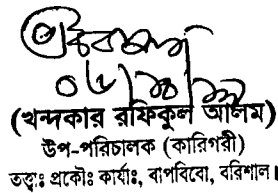 (খন্দকার রফিকুল আলম)
উপ-পরিচালক (কারিগরী)
তত্ত্বঃ প্রকৌঃ কার্যাঃ, বাপবিবো, বরিশাল।